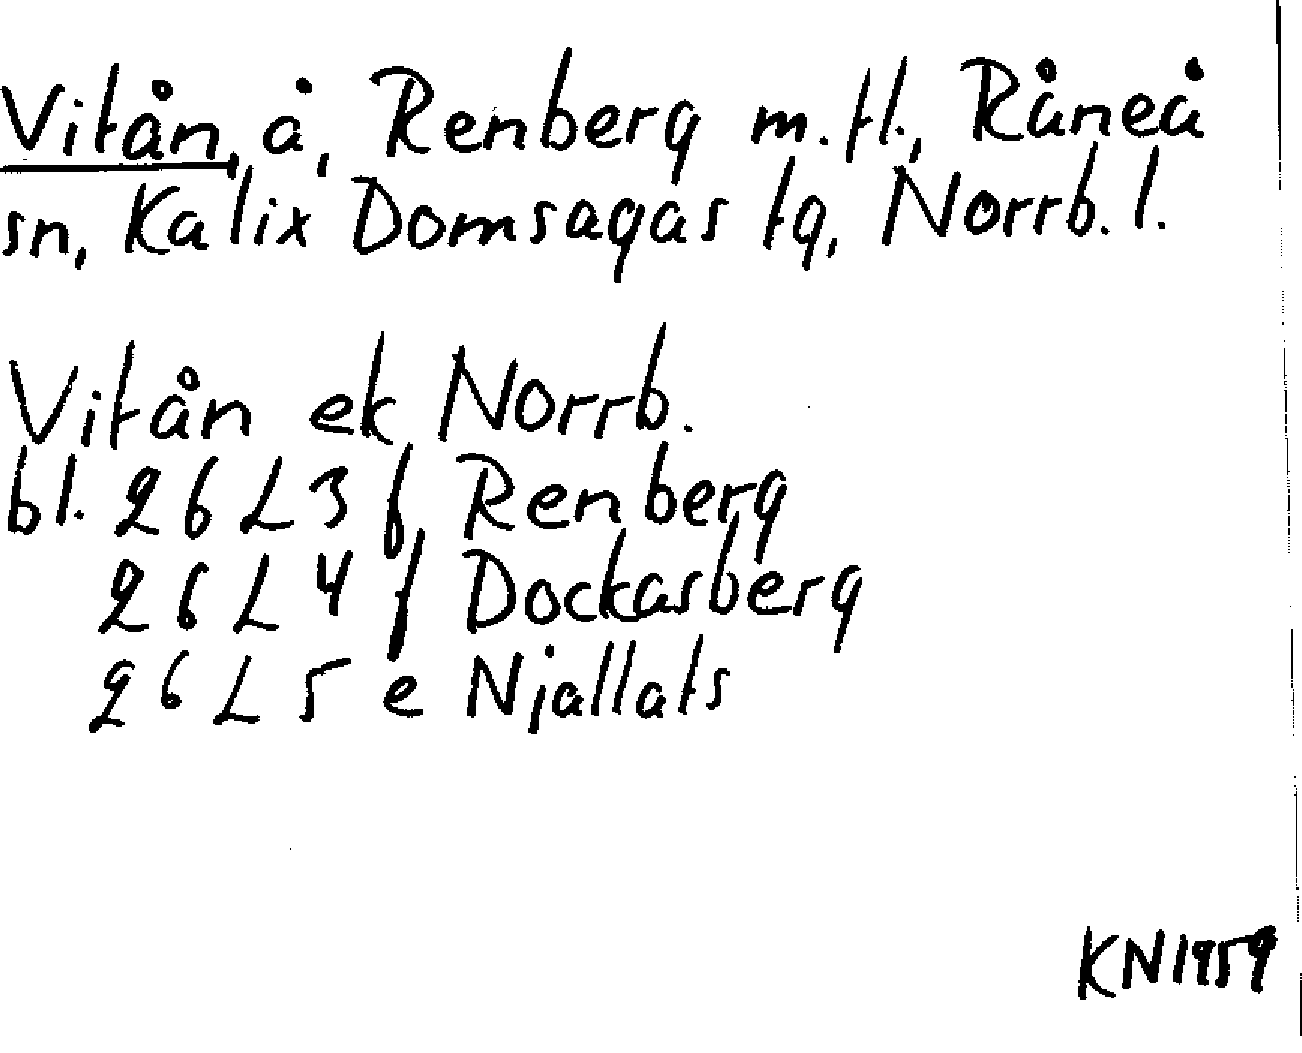 Vitån, å, Renberg m.fl., Råneå
sn, Kalix Domsagas tg, Norrb. l.
Vitån ek Norrb.
bl. 26 L 3 f, Renberg
26 L 4 f Dockasberg
26 L 5 e Njallats
KN1959